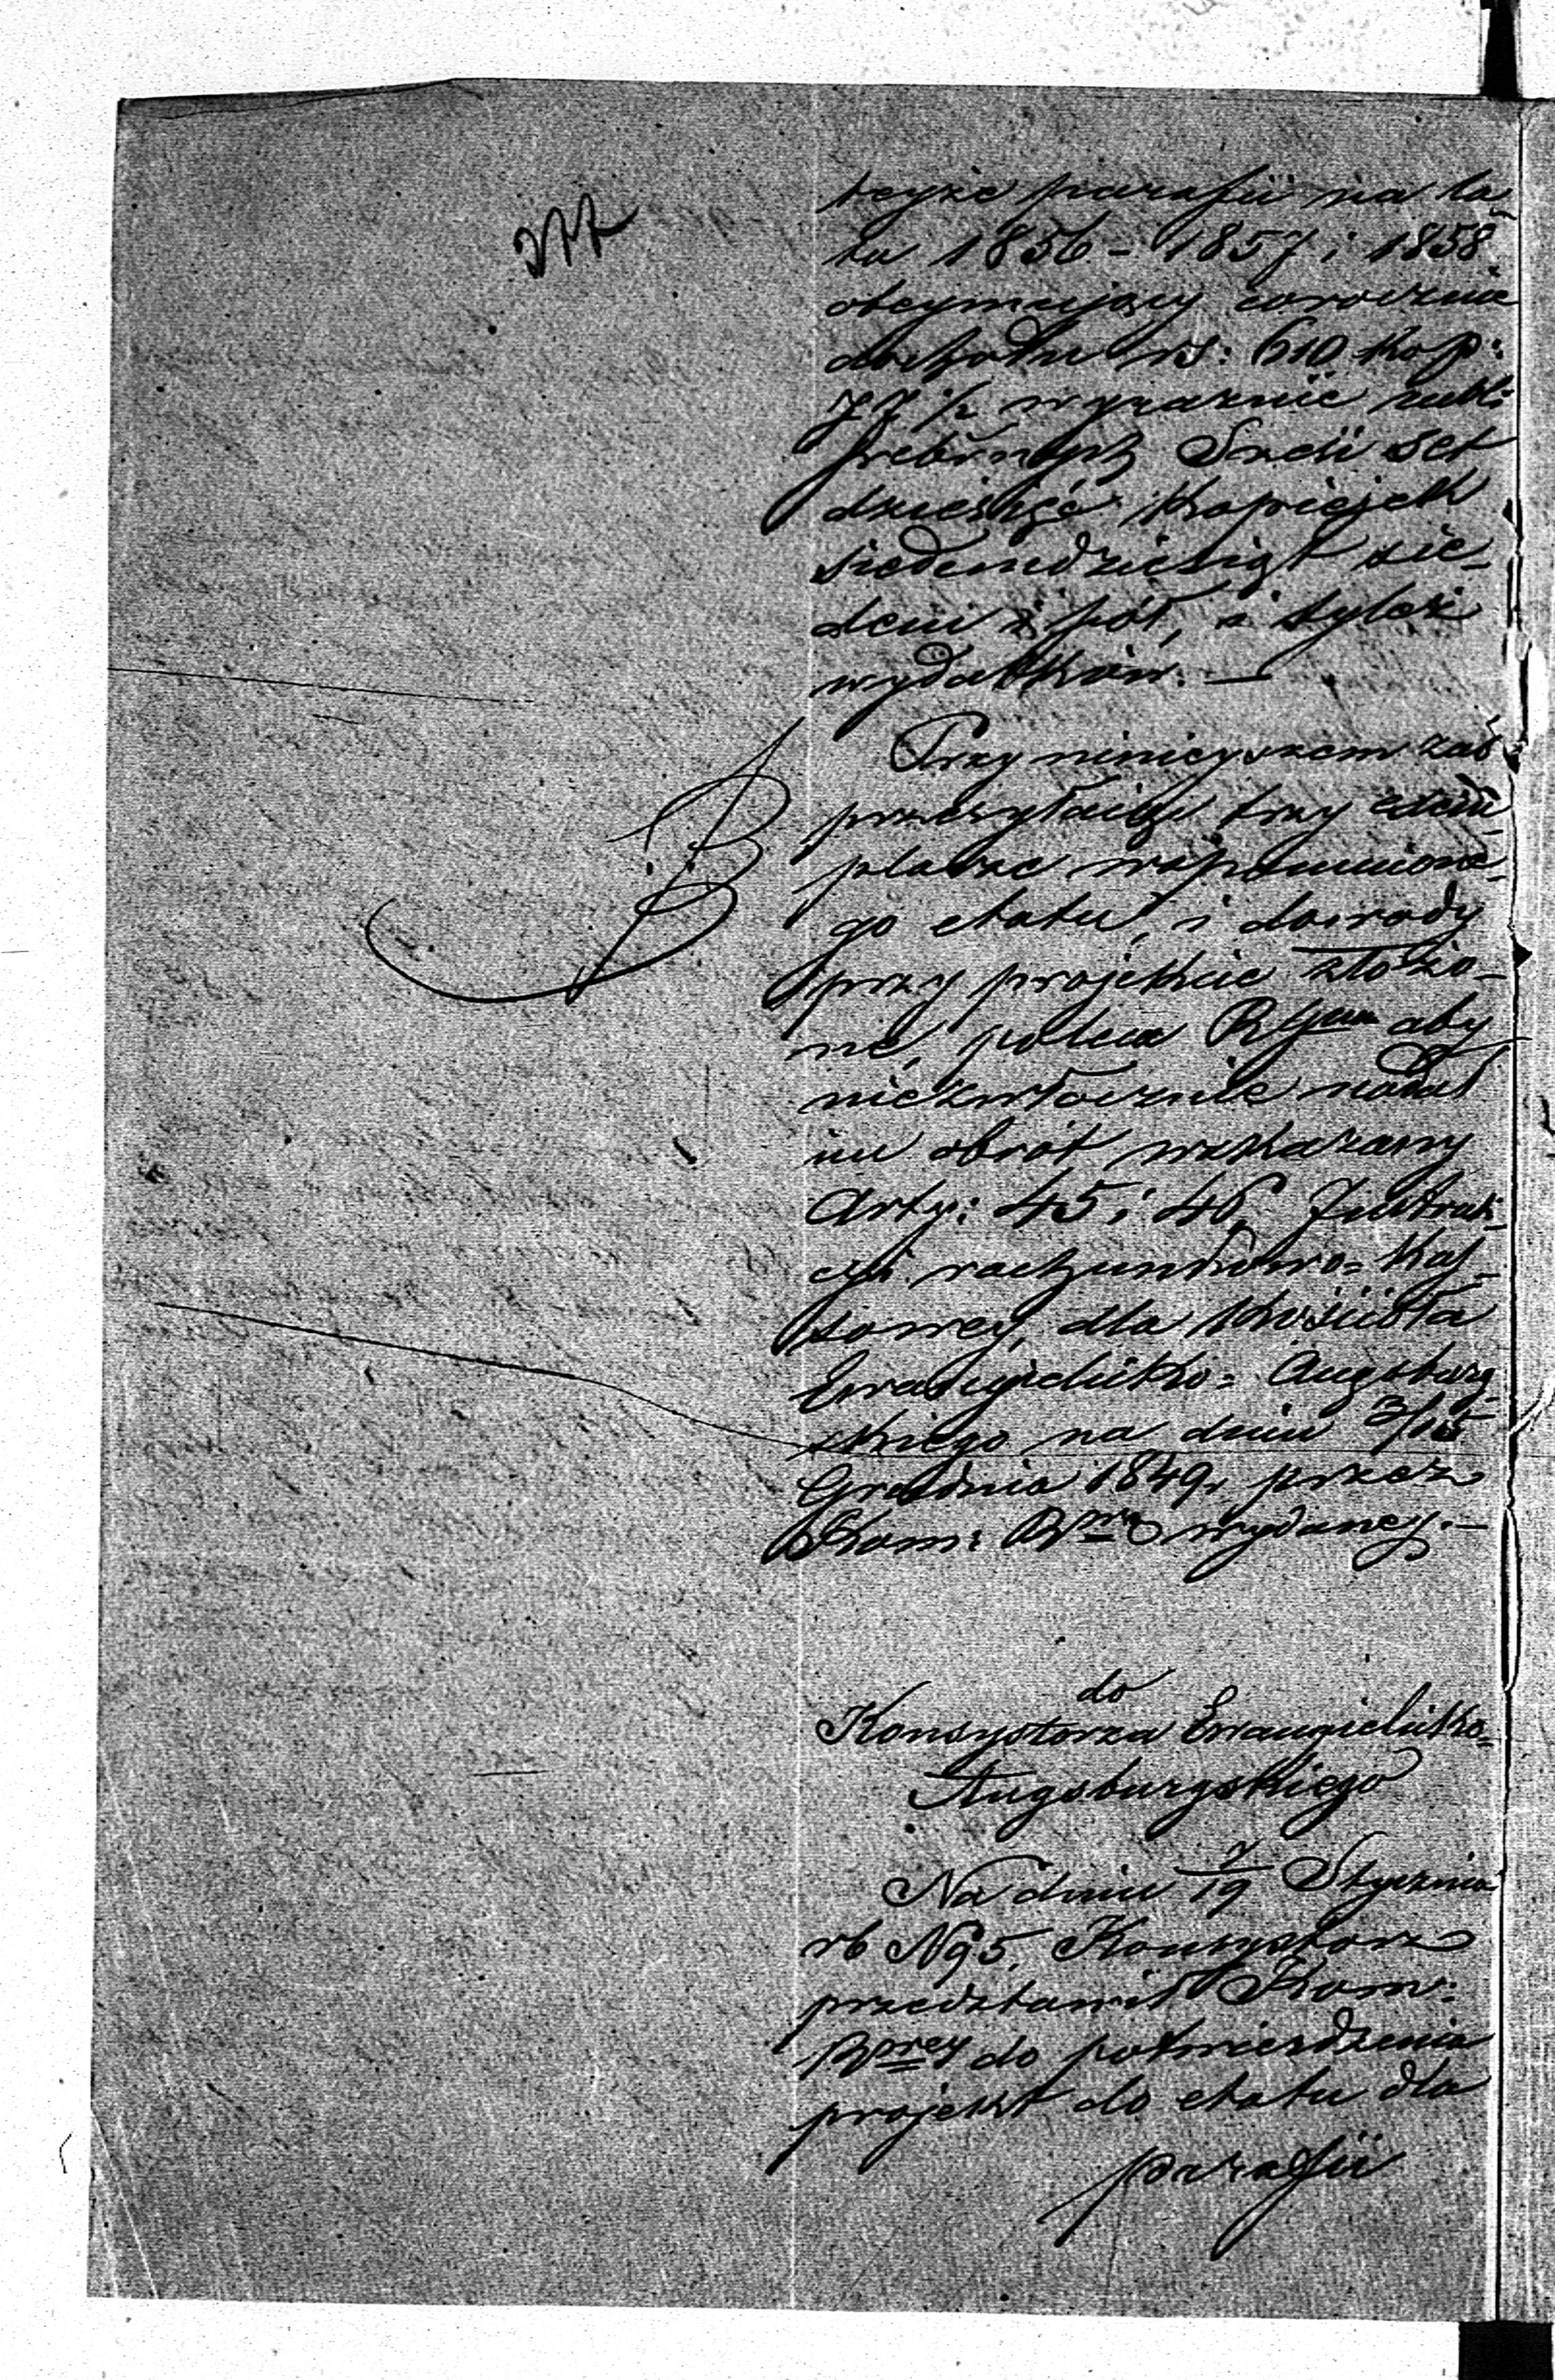 teyże parafii na la-
ta 1856 - 1857 i 1858
obeymujący corocznie
dochodu rs: 610 kop:
77 1/2 wyraźnie rubli
srebrnych Sześć set
dziesięć kopiejek
siedemdziesiąt sie-
dem i pół, i tyleż
wydatków. —
Przy niniejszem zaś
przesyłając trzy exem-
plarze wspomnione-
go etatu, i dowody
przy projekcie złożo-
ne, poleca aby
niezwłocznie nadał
im obrót wskazany
Arty: 45 i 46 Instruk-
cyi rachunkowo-kas-
sowey, dla kościoła
Ewangielicko-Augsburg-
skiego na dniu 3/15
Grudnia 1849 r przez
Kom: Rwą wydaney. —
do
Konsystorza Ewangielicko-
Augsburgskiego
Na dniu 7/19 Stycznia
rb N 95. Konsystorz
przedstawił Kom:
Rwey do potwierdzenia
projekt do etatu dla
parafii